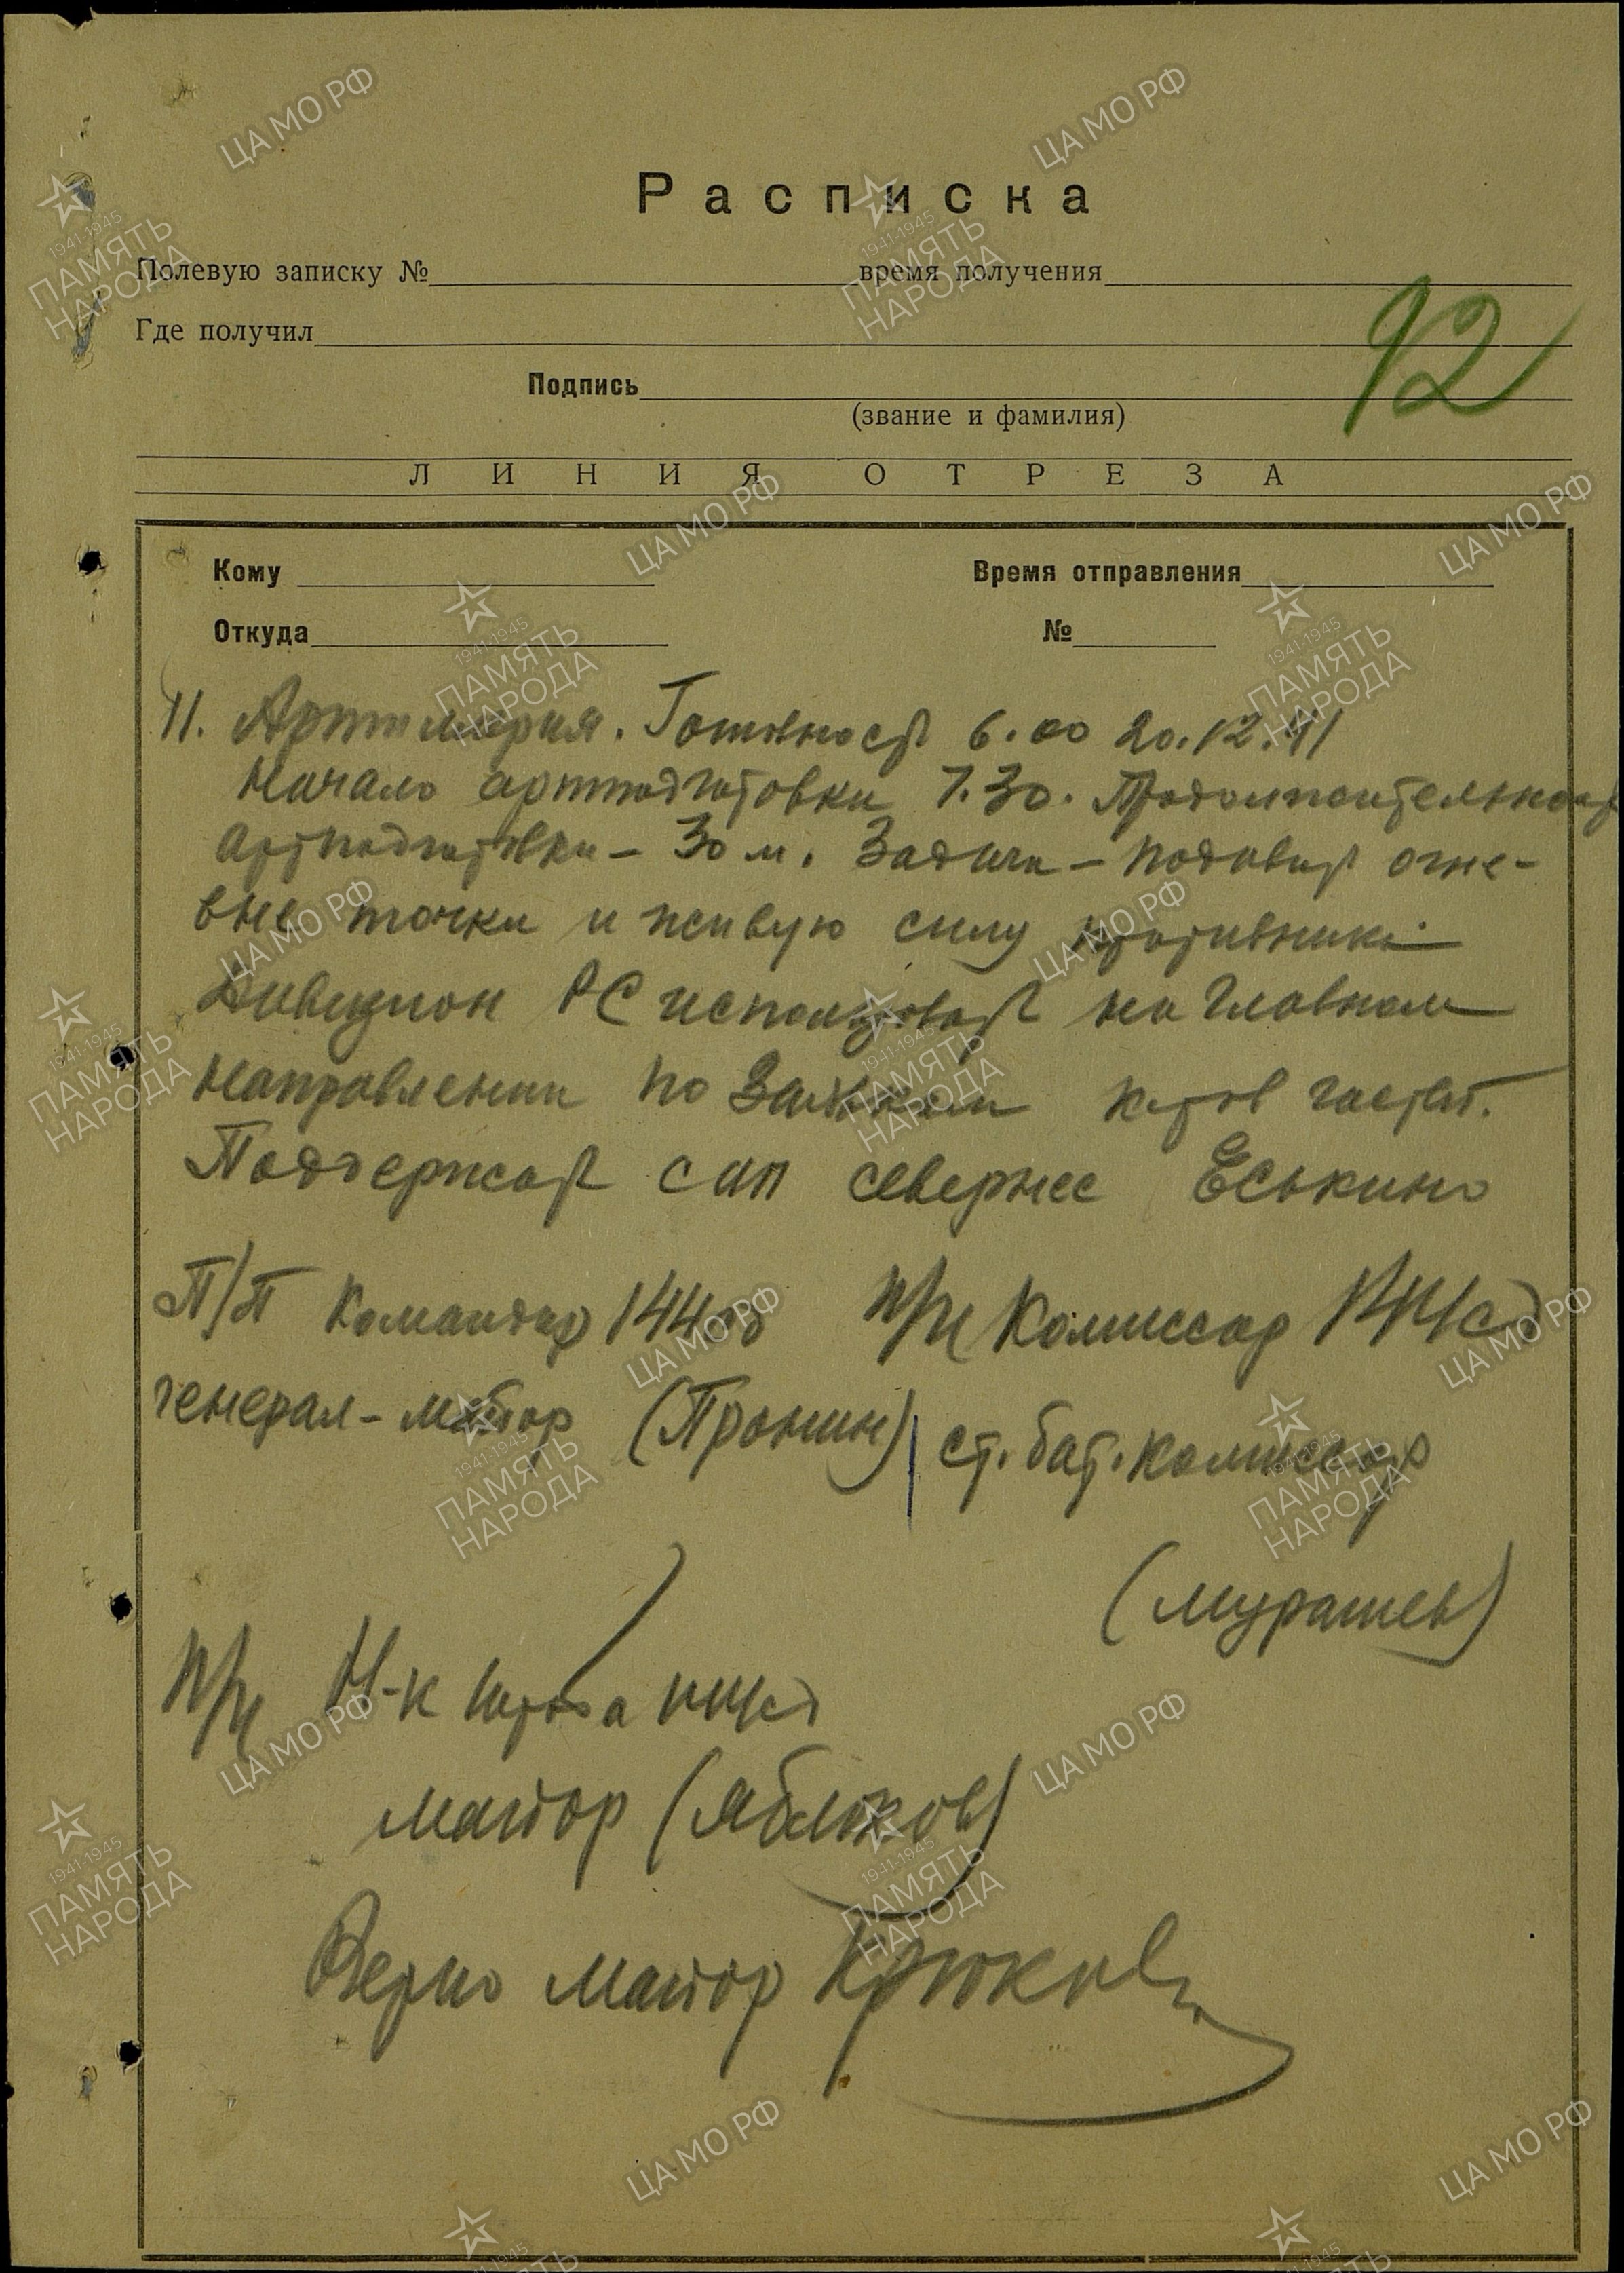 Расписка
Полевую записку № время получения
Где получил
92
Подпись
(звание и фамилия)
ЛИНИЯ ОТРЕЗА
Кому Время отправления
Откуда №
11. Артиллерия. Готовность 6.00 20.12.41
Начало артподготовки 7.30. Продолжительность
артподготовки – 30 м. Задача – подавить огне-
вые точки и живую силу противника
Дивизион РС использовать на главном
направлении по
Поддержать сап севернее Еськино
П/П Командир 144сд п/п Комиссар 144сд
генерал-майор (Пронин) ст. бат. комиссар
(Мурашев)
п/п Н-к штаба 144сд
майор (Яблоков)
Верно майор Крюков
ЦАМО РФ
1941-1945
ПАМЯТЬ
НАРОДА